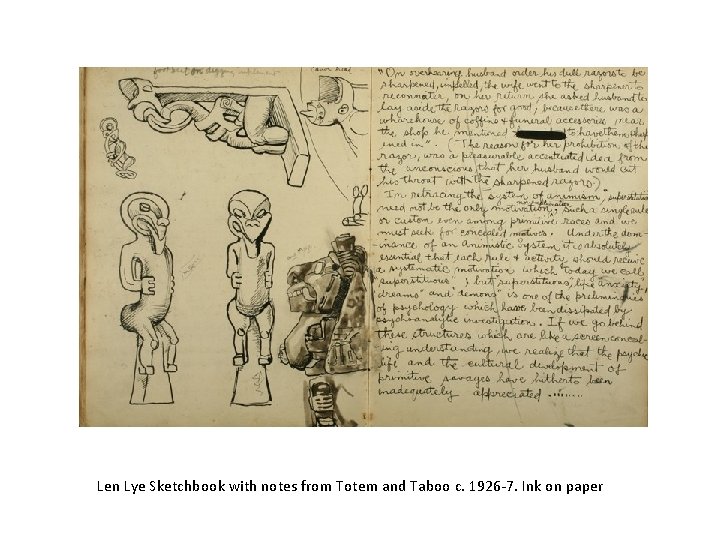 foot rest on digging implement
"On overhearing husband order his dull razors to be
sharpened, impelled, the wife went to the sharpener to
reconnoiter, on her return, she asked husband to
lay aside the razors for good, because there was a
wharehouse of coffins & funeral accessories near
the shop he mentioned to have them sharp
ened in". ("The reason for her prohibition of the
razors, was a pleasurable accentuated idea from
the unconscious that her husband would cut
his throat (with the sharpened razors.)
I'm retracing the system of animism, superstition
need not be the only motivation, such a single rule
or custom even among primitive races and we
must seek for concealed motives. Under the dom-
inance of an animistic system it is absolutely
essential that each rule & activity should receive
a systematic motivation which today we call
superstitious; but "superstitious", like "anxiety",
dreams" and "demons" is one of the preliminaries
of psychology which have been dissipated by
psychoanalytic investigations. If we go behind
these structures which are like a screen conceal-
ing understanding, we realize that the psychic
life and the cultural development of
primitive savages have hitherto been
inadequately appreciated.........
Len Lye Sketchbook with notes from Totem and Taboo c. 1926-7. Ink on paper